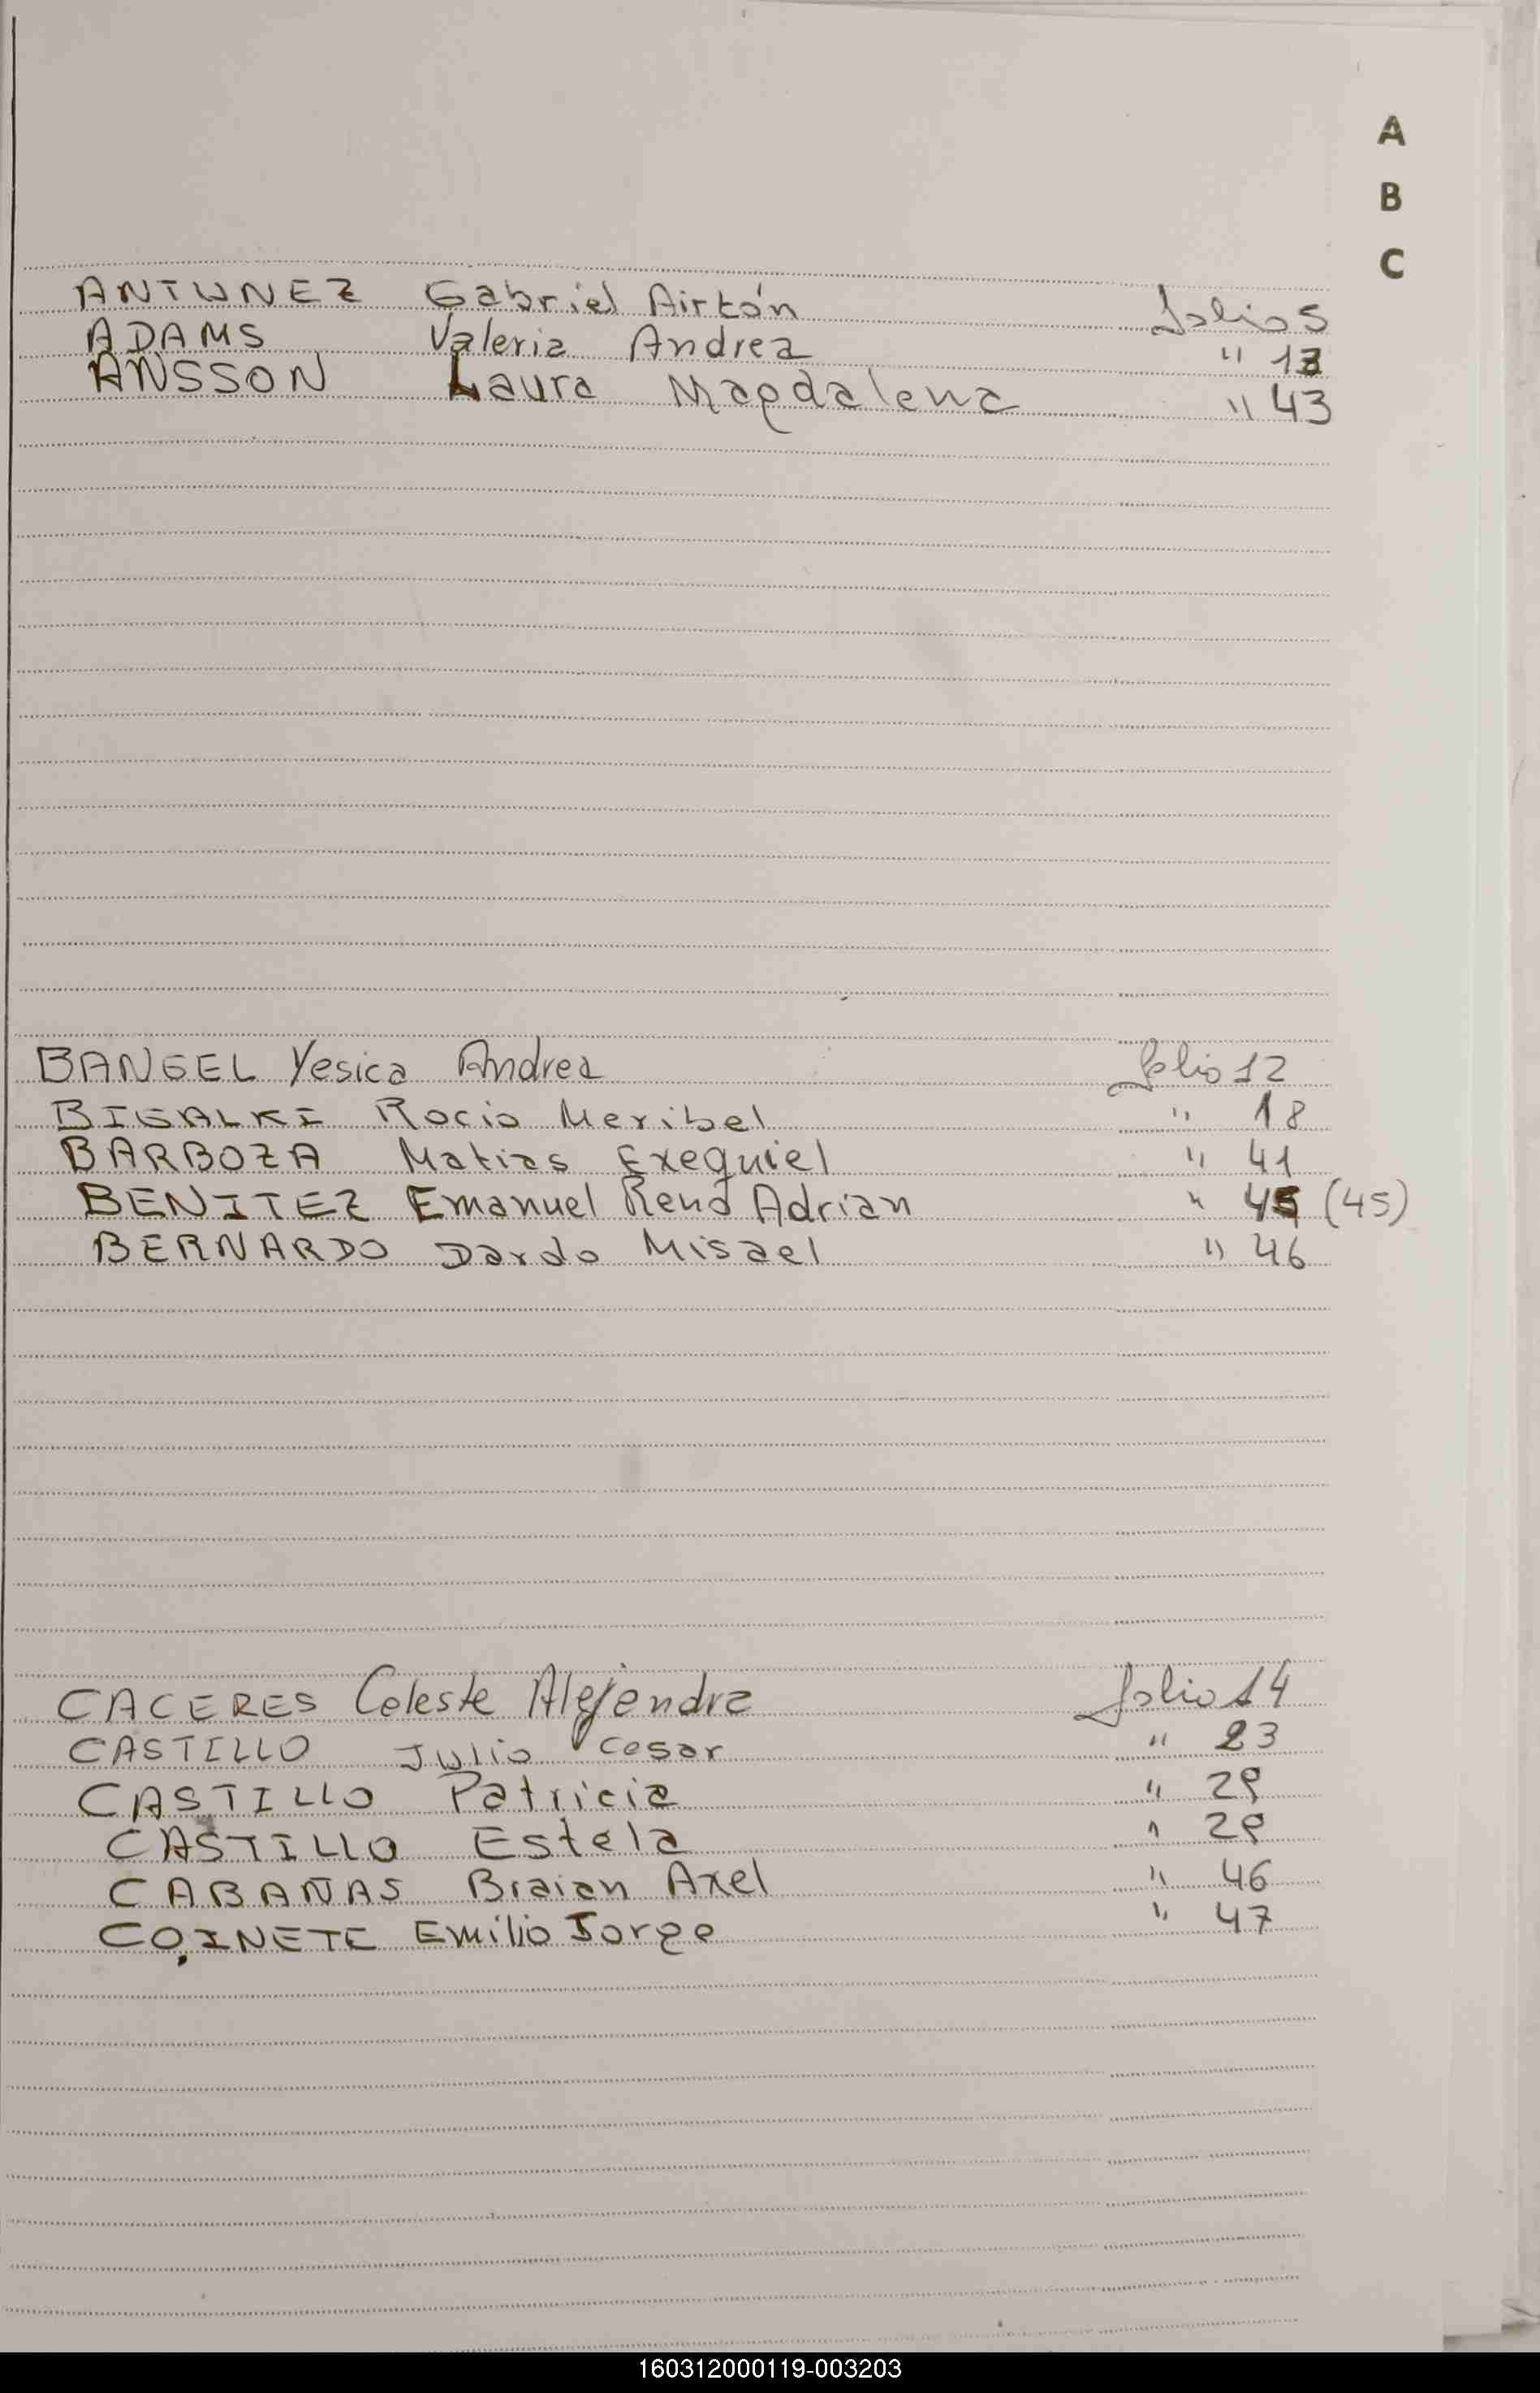 A
B
C
ANTUNEZ Gabriel Airtón folio 5
ADAMS Valeria Andrea " 13
ANSSON Laura Magdalena " 43
BANGEL Yesica Andrea folio 12
BIGALKI Rocio Meribel " 18
BARBOZA Matias Exequiel " 41
BENITEZ Emanuel René Adrian " 45 (45)
BERNARDO Dardo Misael " 46
CACERES Celeste Alejandra folio 14
CASTILLO Julio Cesar " 23
CASTILLO Patricia " 29
CASTILLO Estela " 29
CABAÑAS Braian Axel " 46
COINETE Emilio Jorge " 47
160312000119-003203